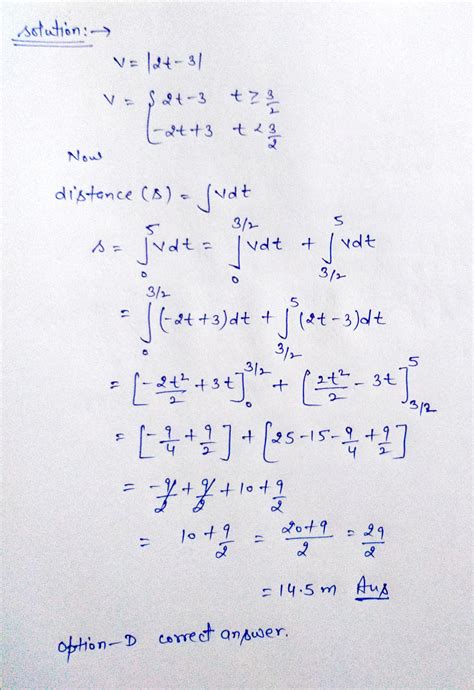 solution:→
v = |2t-3|
v = { 2t-3   t ≥ 3/2
-2t+3   t < 3/2
Now
distance (s) = ∫vdt
s = ∫₀⁵ vdt = ∫₀^{3/2} vdt + ∫_{3/2}^5 vdt
= ∫₀^{3/2} (-2t+3)dt + ∫_{3/2}^5 (2t-3)dt
= [-2t²/2 + 3t]₀^{3/2} + [2t²/2 - 3t]_{3/2}^5
= [-9/4 + 9/2] + [25-15-9/4+9/2]
= -9/2 + 9/2 + 10 + 9/2
= 10+9/2 = 20+9/2 = 29/2
= 14.5 m Ans
option-D correct answer.